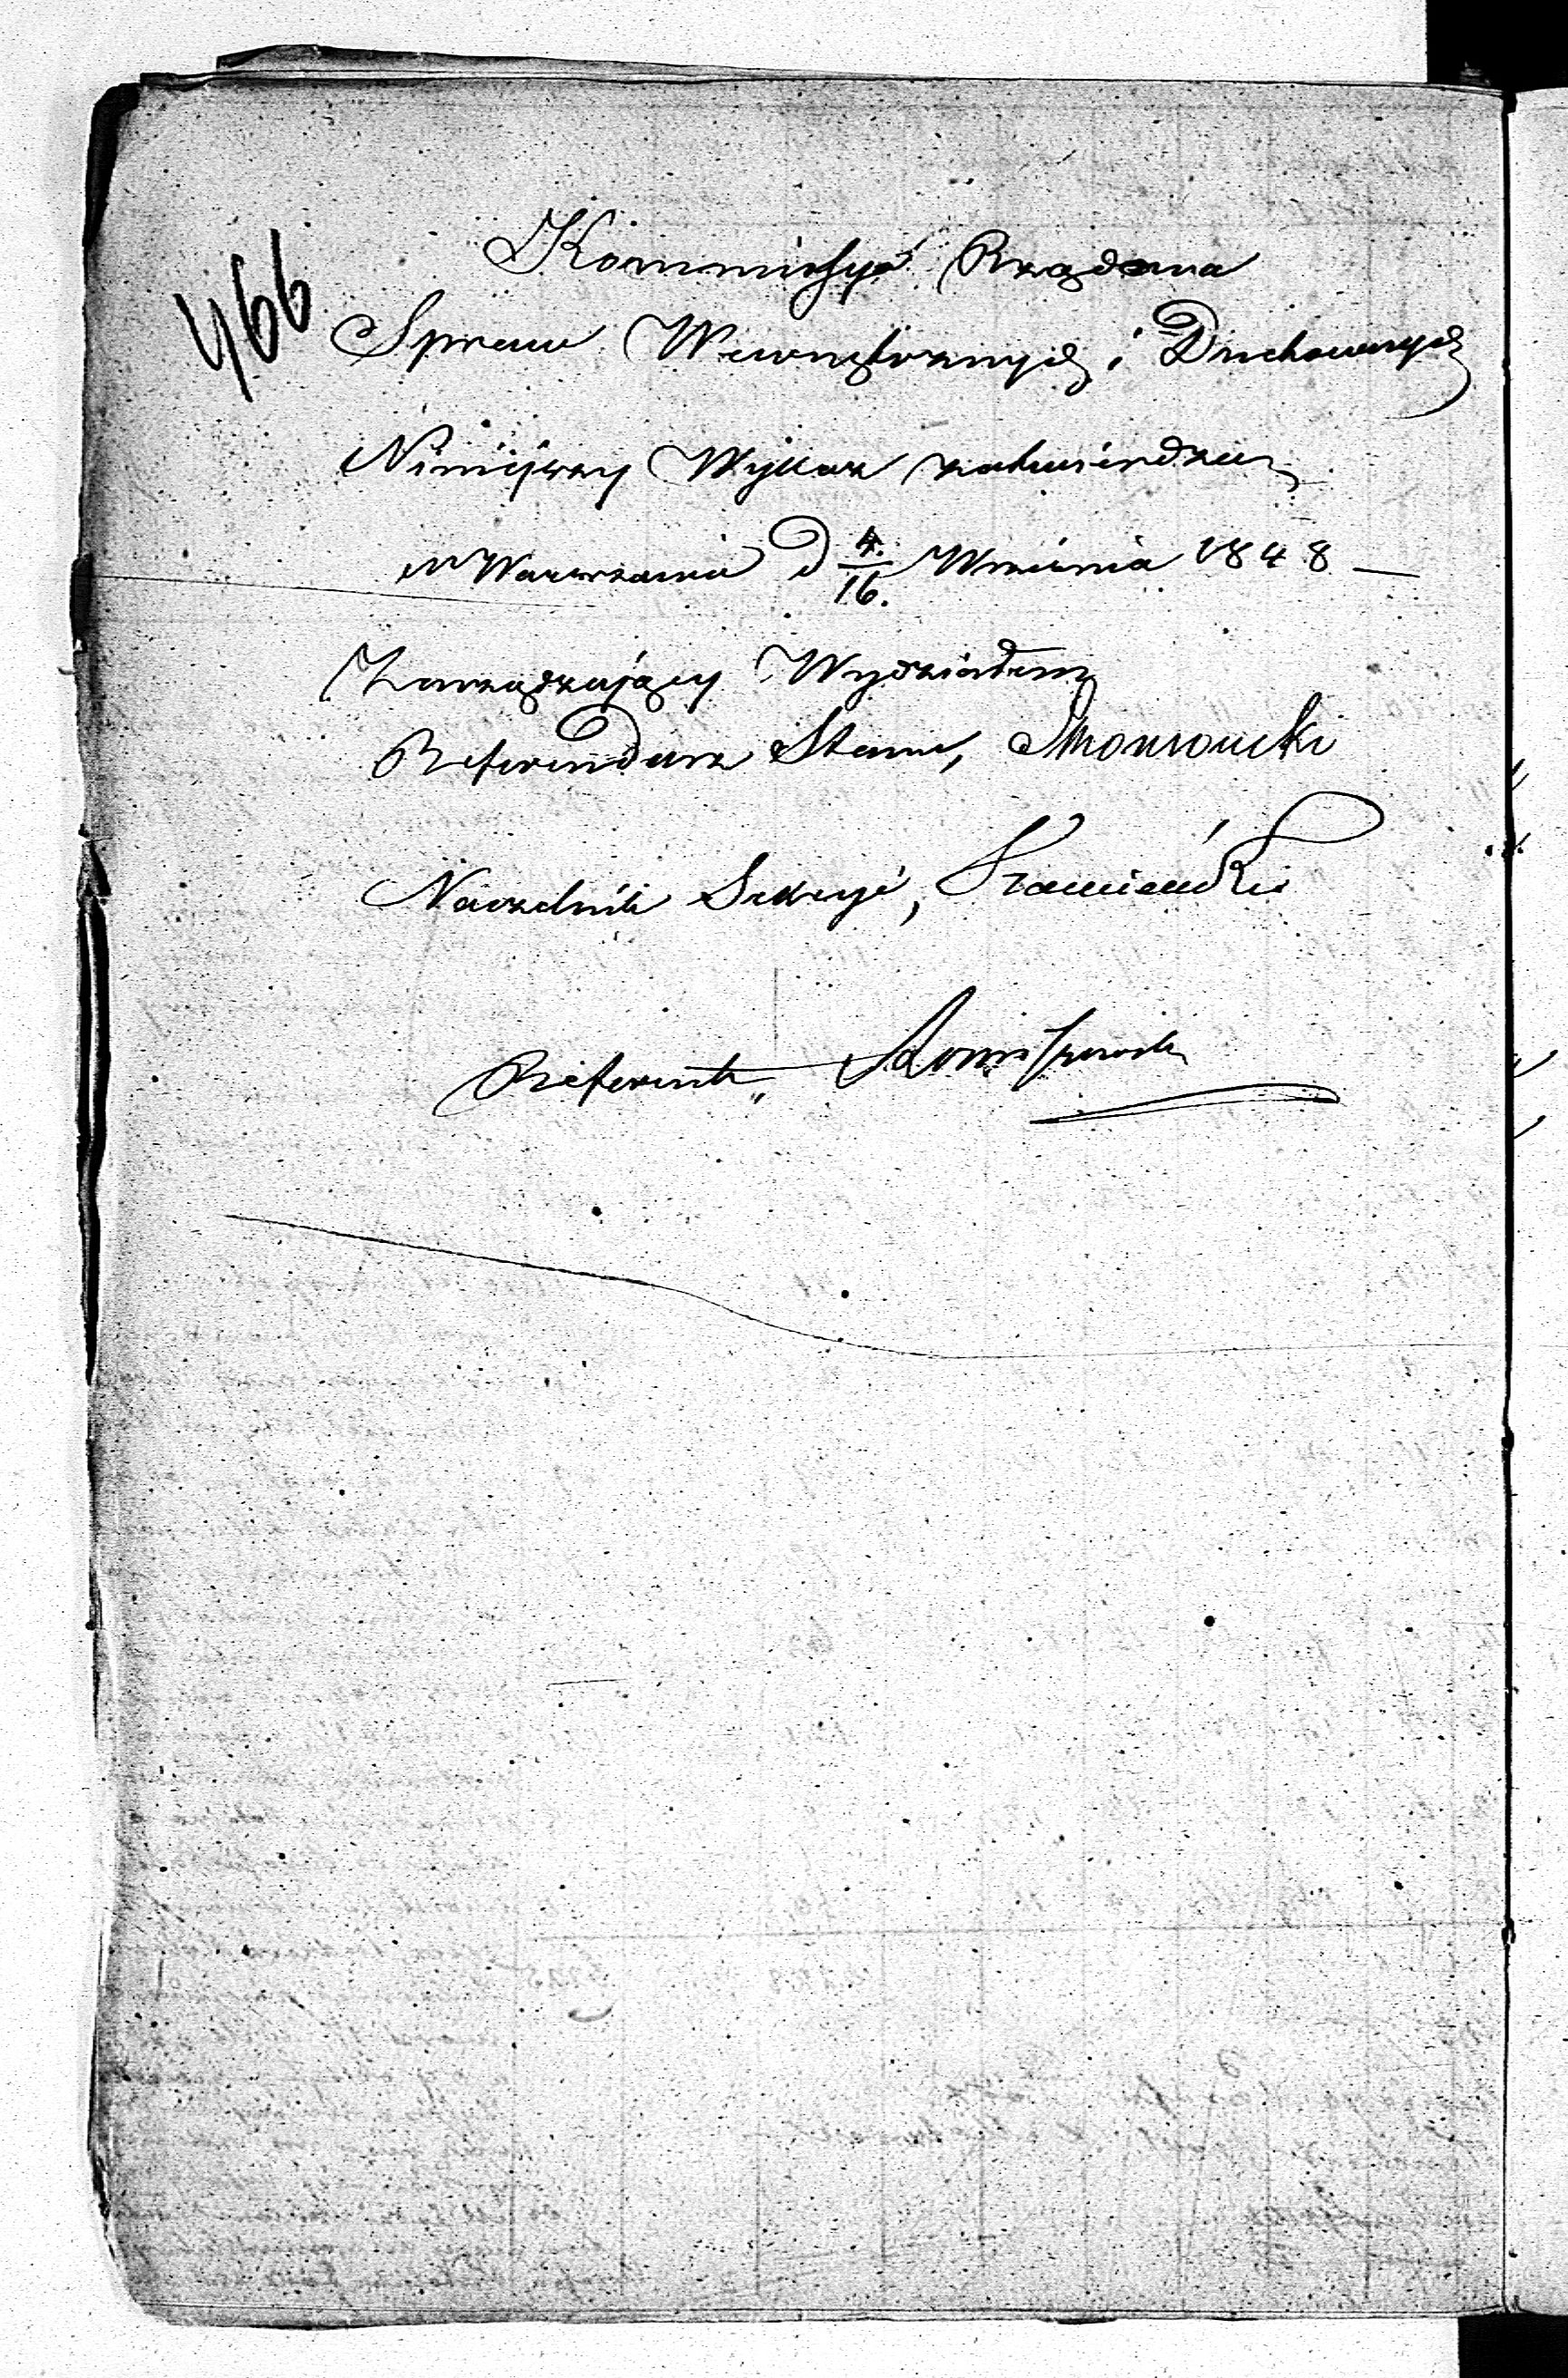 466
Kommissya Rządowa
Spraw Wewnętrznych i Duchownych
Niniejszy Wykaz zatwierdza
w Warszawie d 4/16. Września 1848 —
Zarządzający Wydziałem
Referendarz Stanu,
Naczelnik Sekcyi,
Referent,